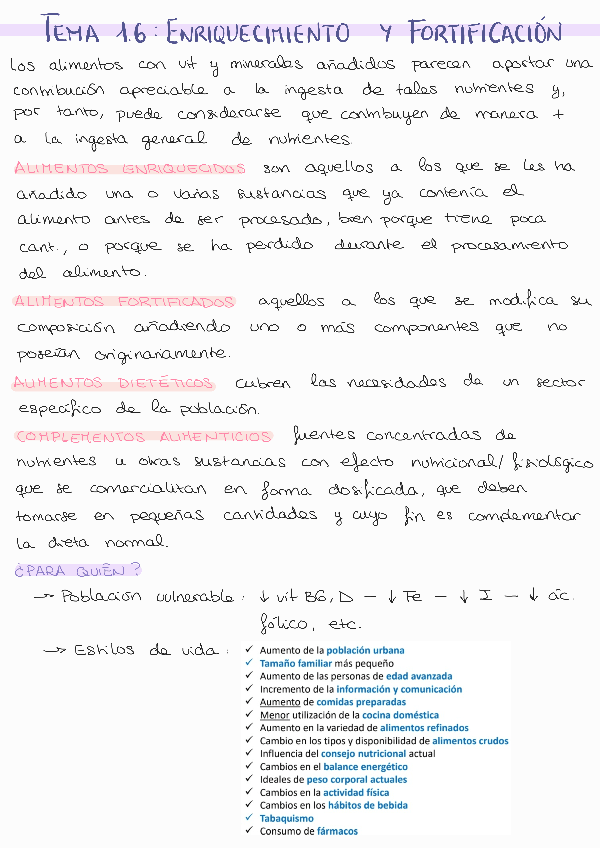 TEMA 1.6: ENRIQUECIMIENTO Y FORTIFICACIÓN
Los alimentos con vit y minerales añadidos parecen aportar una
contribución apreciable a la ingesta de tales nutrientes y,
por tanto, puede considerarse que contribuyen de manera +
a la ingesta general de nutrientes.
ALIMENTOS ENRIQUECIDOS son aquellos a los que se les ha
añadido una o varias sustancias que ya contenía el
alimento antes de ser procesado, bien porque tiene poca
cant., o porque se ha perdido durante el procesamiento
del alimento.
ALIMENTOS FORTIFICADOS aquellos a los que se modifica su
composición añadiendo uno o más componentes que no
poseían originariamente.
ALIMENTOS DIETÉTICOS cubren las necesidades de un sector
específico de la población.
COMPLEMENTOS ALIMENTICIOS fuentes concentradas de
nutrientes u otras sustancias con efecto nutricional/fisiológico
que se comercializan en forma dosificada, que deben
tomarse en pequeñas cantidades y cuyo fin es complementar
la dieta normal.
¿PARA QUIÉN?
→ Población vulnerable: ↓ vit B6, D - ↓ Fe - ↓ I - ↓ ác.
fólico, etc.
→ Estilos de vida:
✓ Aumento de la población urbana
✓ Tamaño familiar más pequeño
✓ Aumento de las personas de edad avanzada
✓ Incremento de la información y comunicación
✓ Aumento de comidas preparadas
✓ Menor utilización de la cocina doméstica
✓ Aumento en la variedad de alimentos refinados
✓ Cambio en los tipos y disponibilidad de alimentos crudos
✓ Influencia del consejo nutricional actual
✓ Cambios en el balance energético
✓ Ideales de peso corporal actuales
✓ Cambios en la actividad física
✓ Cambios en los hábitos de bebida
✓ Tabaquismo
✓ Consumo de fármacos